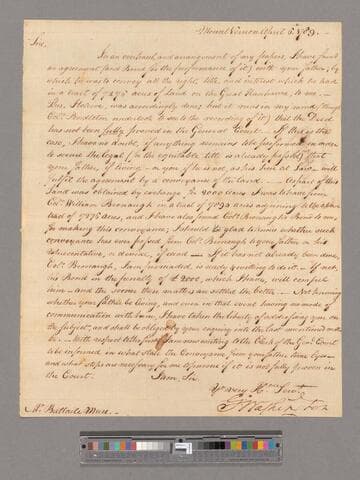 Mount Vernon April 5th 1789.
Sir,
In an overhaul and arrangement of my papers, I have found
an agreement (and Bond for the performance of it) with your father, by
which he was to convey all the right, title and interest which he had
in a tract of 7276 acres of Land on the Great Kanhawa, to me.—
This, I believe, was accordingly done; but it runs in my mind (though
Colo. Pendleton undertook to see to the recording of it) that the Deed
has not been fully proved in the General Court.— If this is the
case, I have no doubt, if any thing remains to be performed in order
to secure the legal (for the equitable title is already passed) that
your father, if living—or you, if he is not, as his heir at Law, will
fulfil the agreement by a conveyance of the Land.— A part of this
Land was obtained by exchange for 2000 acres I was to have from
Colo. William Bronaugh in a tract of adjoining to the above
tract of 7276 acres, and I have also found Colo. Bronaugh's Bond to me,
for making this conveyance; I should be glad to know whether such
conveyance has ever passed from Colo. Bronaugh to your father or his
representative, or devisee, if dead.— If it has not already been done
Colo. Bronaugh, I am persuaded, is ready & willing to do it.— If not
his Bond in the penalty of £2000, which I have, will compel
him—and the sooner these matters are settled the better.— Not knowing
whether your father be living, and even in that event having no mode of
communication with him, I have taken the liberty of addressing you on
the subject, and shall be obliged by your enquiring into the last mentioned matter
With respect to the first, I am now writing to the Clerk of the Genl. Court
to be informed in what state the Conveyance from your father to me lyes—
and what steps are necessary for me to pursue if it is not fully proven in
the Court.
I am, Sir
Yr very Hble Servt
Go: Washington
Mr. Battaile Muse.—